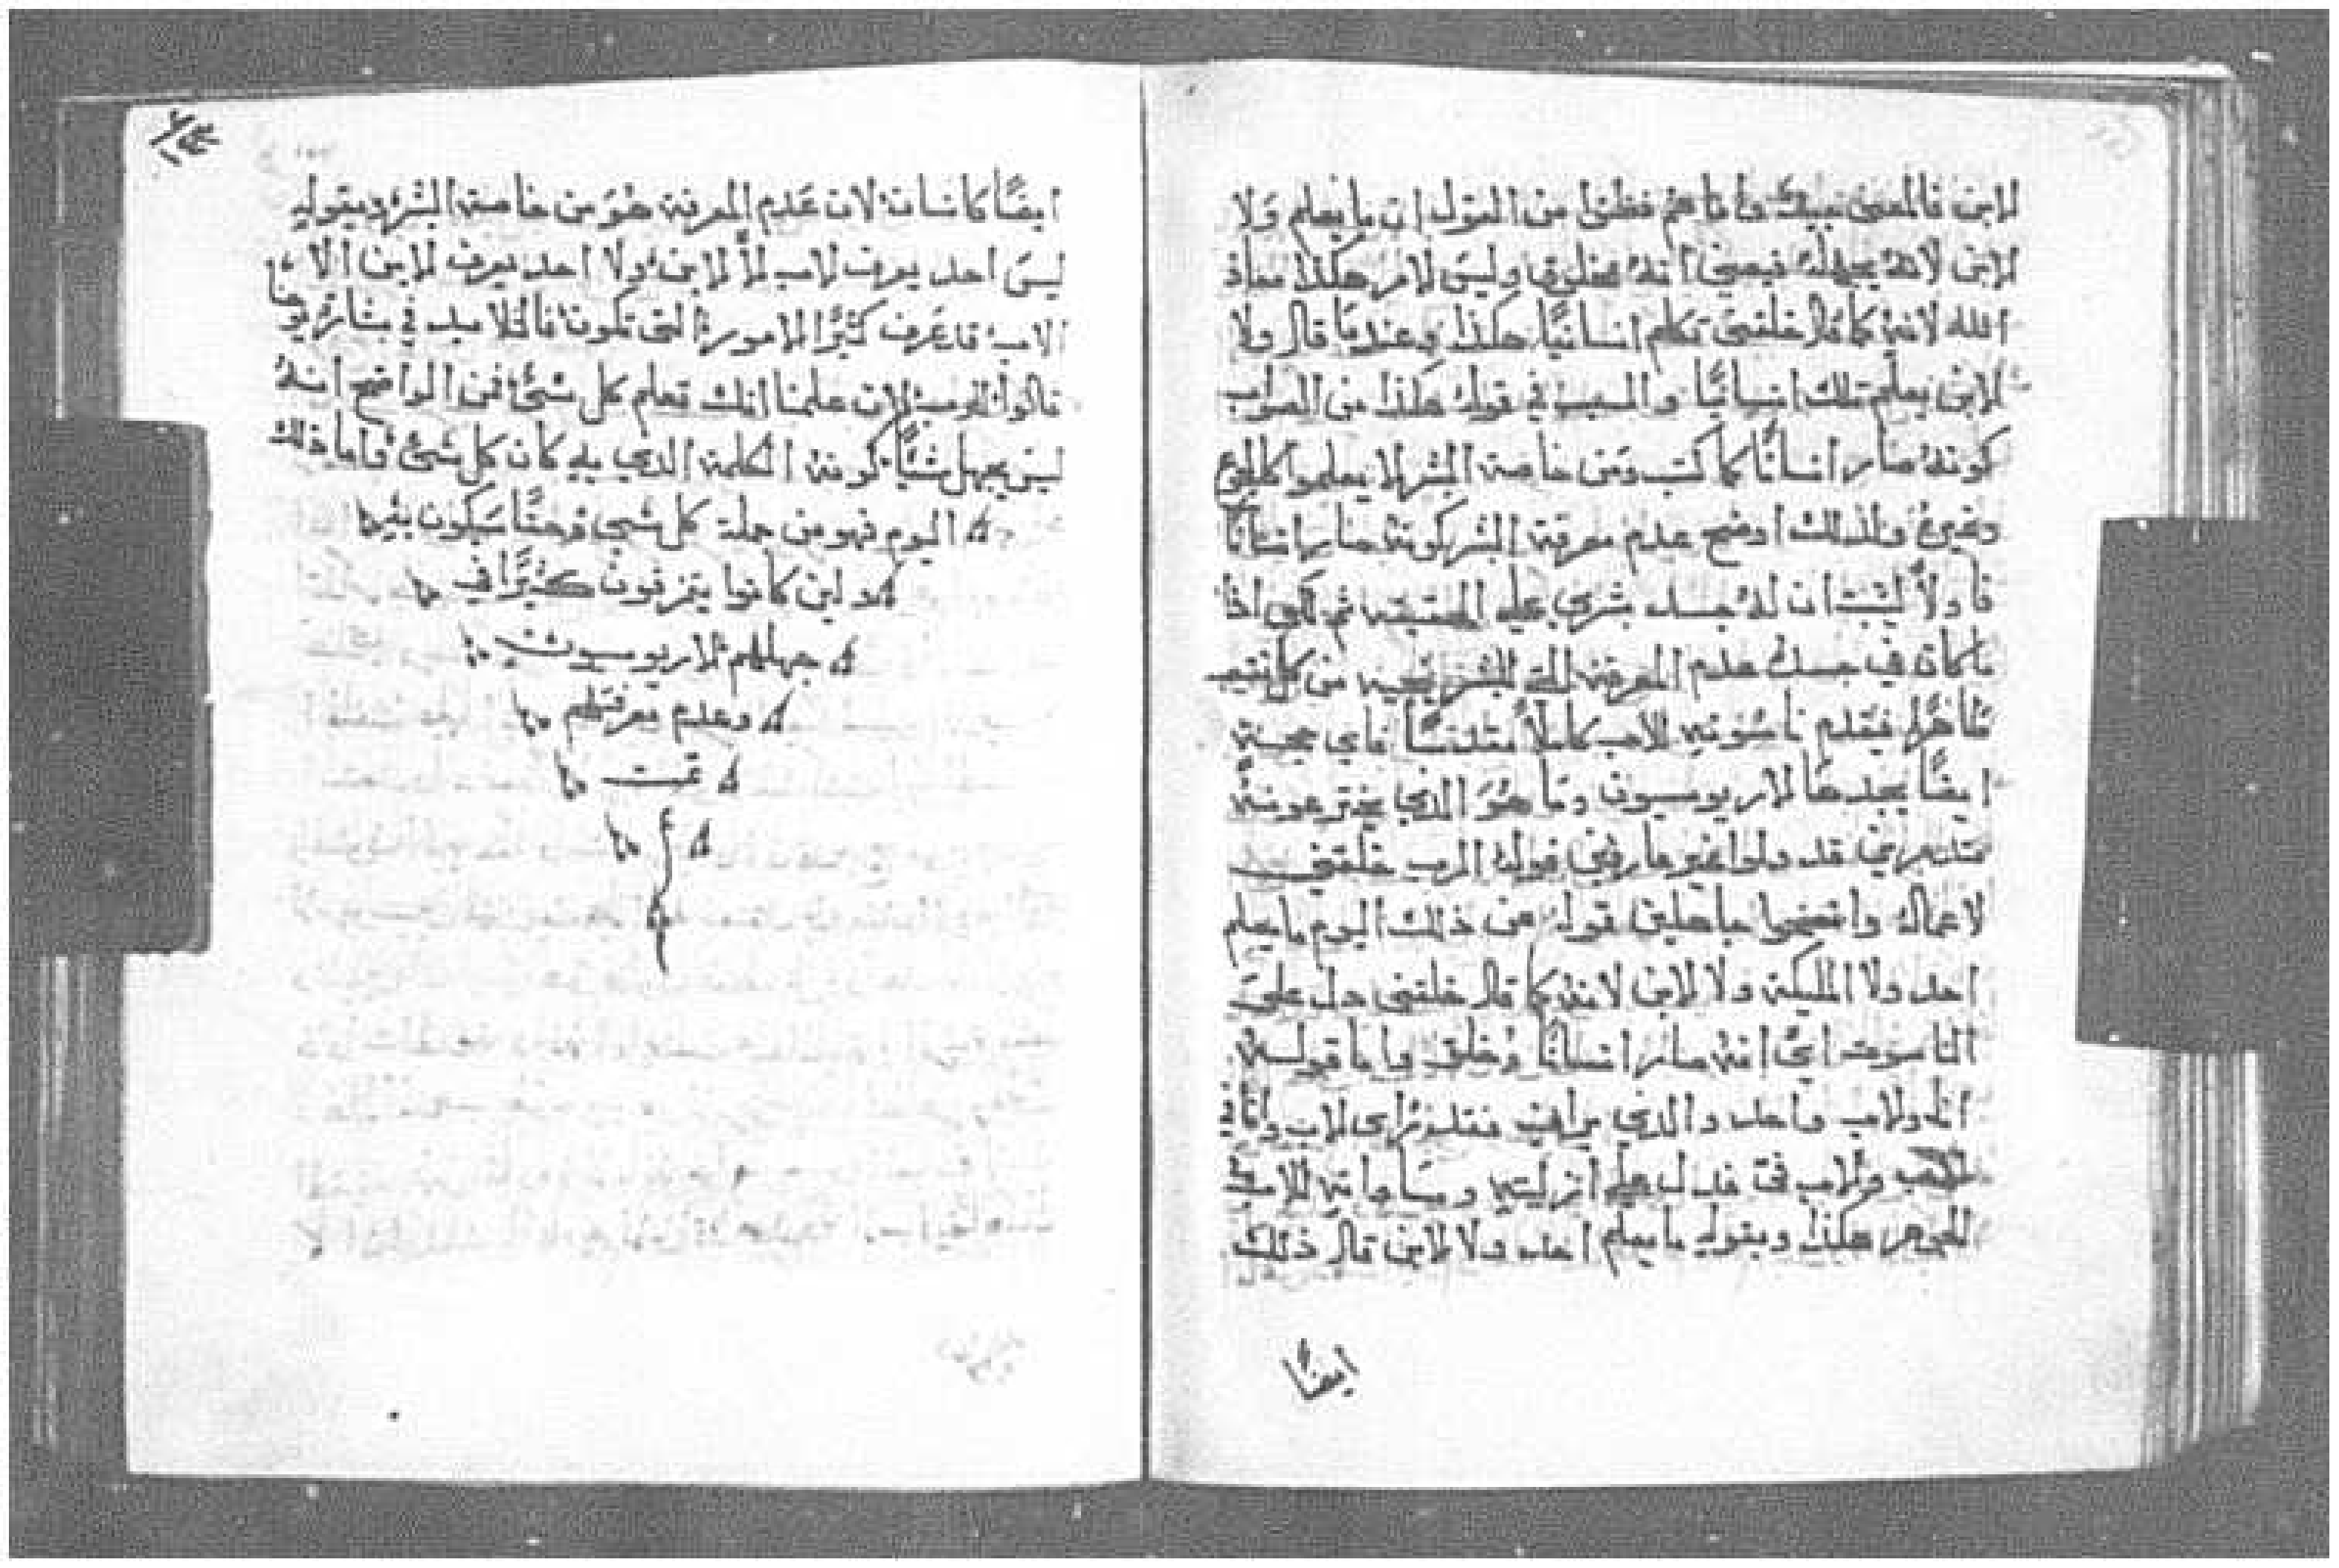 الابن فالمعنى بيبك واما هم فظنوا من القول ان ما يعلم ولا
الابن لانه يجهل فيعني انه مخلوق وليس الامر هكذا معاذ
الله لانه كما قال خلقني تكلم انسانيًا هكذا وعندما قال ولا
الابن يعلم تلك انسانيًا والسبب في قوله هكذا من الصواب
كونه صار انسانًا كما كتب ومن خاصة البشر لا يعلموا كالجوع
وغيره ولذلك اوضح عدم معرفة البشر كونه صار انسانًا
فاولاً ليثبت ان له جسد بشري على الحقيقة ثم لكي اذا
ما كان في جسده عدم المعرفة التي للبشر من كل
فيقدم ناسوته للاب كاملاً مقدسًا فاي حجة
ايضًا يجدها الاريوسيون وما هو الذي يخترعونه
متدمرين قد ولوا غير عارفين قوله الرب خلقني
لاعماله واتضحوا جاهلين قوله عن ذلك اليوم ما يعلم
احد ولا المليكة ولا الابن لانه كما قال خلقني دل على
الناسوت اي انه صار انسانًا وخلق واما قوله
انا والاب واحد والذي يراني فقد راى الاب وانا في
الاب والاب في فدل على ازليته ومساواته للاب في
الجوهر هكذا وبقوله ما يعلم احد ولا الابن قال ذلك
ايضًا
ايضًا كانسان لان عدم المعرفة هو من خاصة البشر وبقوله
ليس احد يعرف الاب الا الابن ولا احد يعرف الابن الا
الاب قد عرف كثيرًا الامور التي تكون فالتلاميد في بشارة يوحنا
قالوا للرب الان علمنا انك تعلم كل شيء فمن الواضح انه
ليس يجهل شيًا كونه الكلمة الذي به كان كل شيء واما ذلك
اليوم فهو من جملة كل شي وحقًا سيكون بغير
ولين كانوا يتمزقون كثيرًا في
جهلهم الاريوسيون
وعدم معرفتهم
تمت